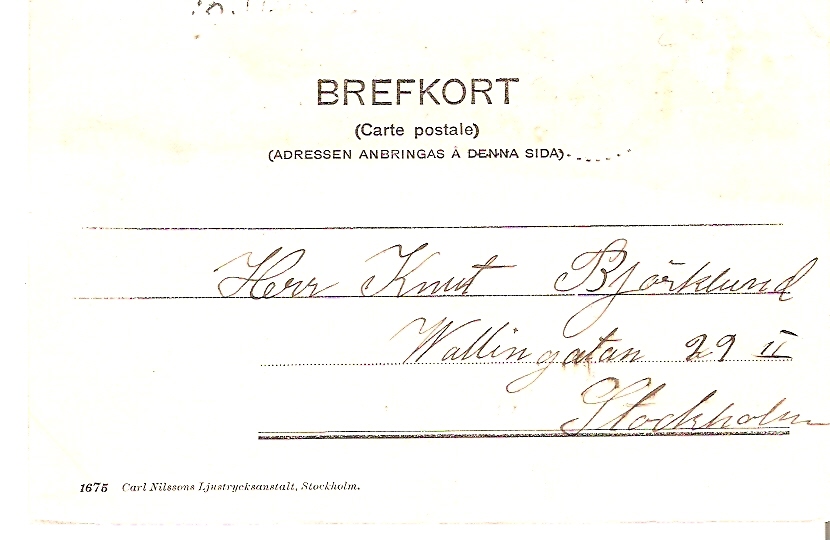 BREFKORT
(Carte postale)
(ADRESSEN ANBRINGAS Å DENNA SIDA)
Herr Knut Björklund
Wallingatan 29 II
Stockholm
1675 Carl Nilssons Ljustrycksanstalt, Stockholm.